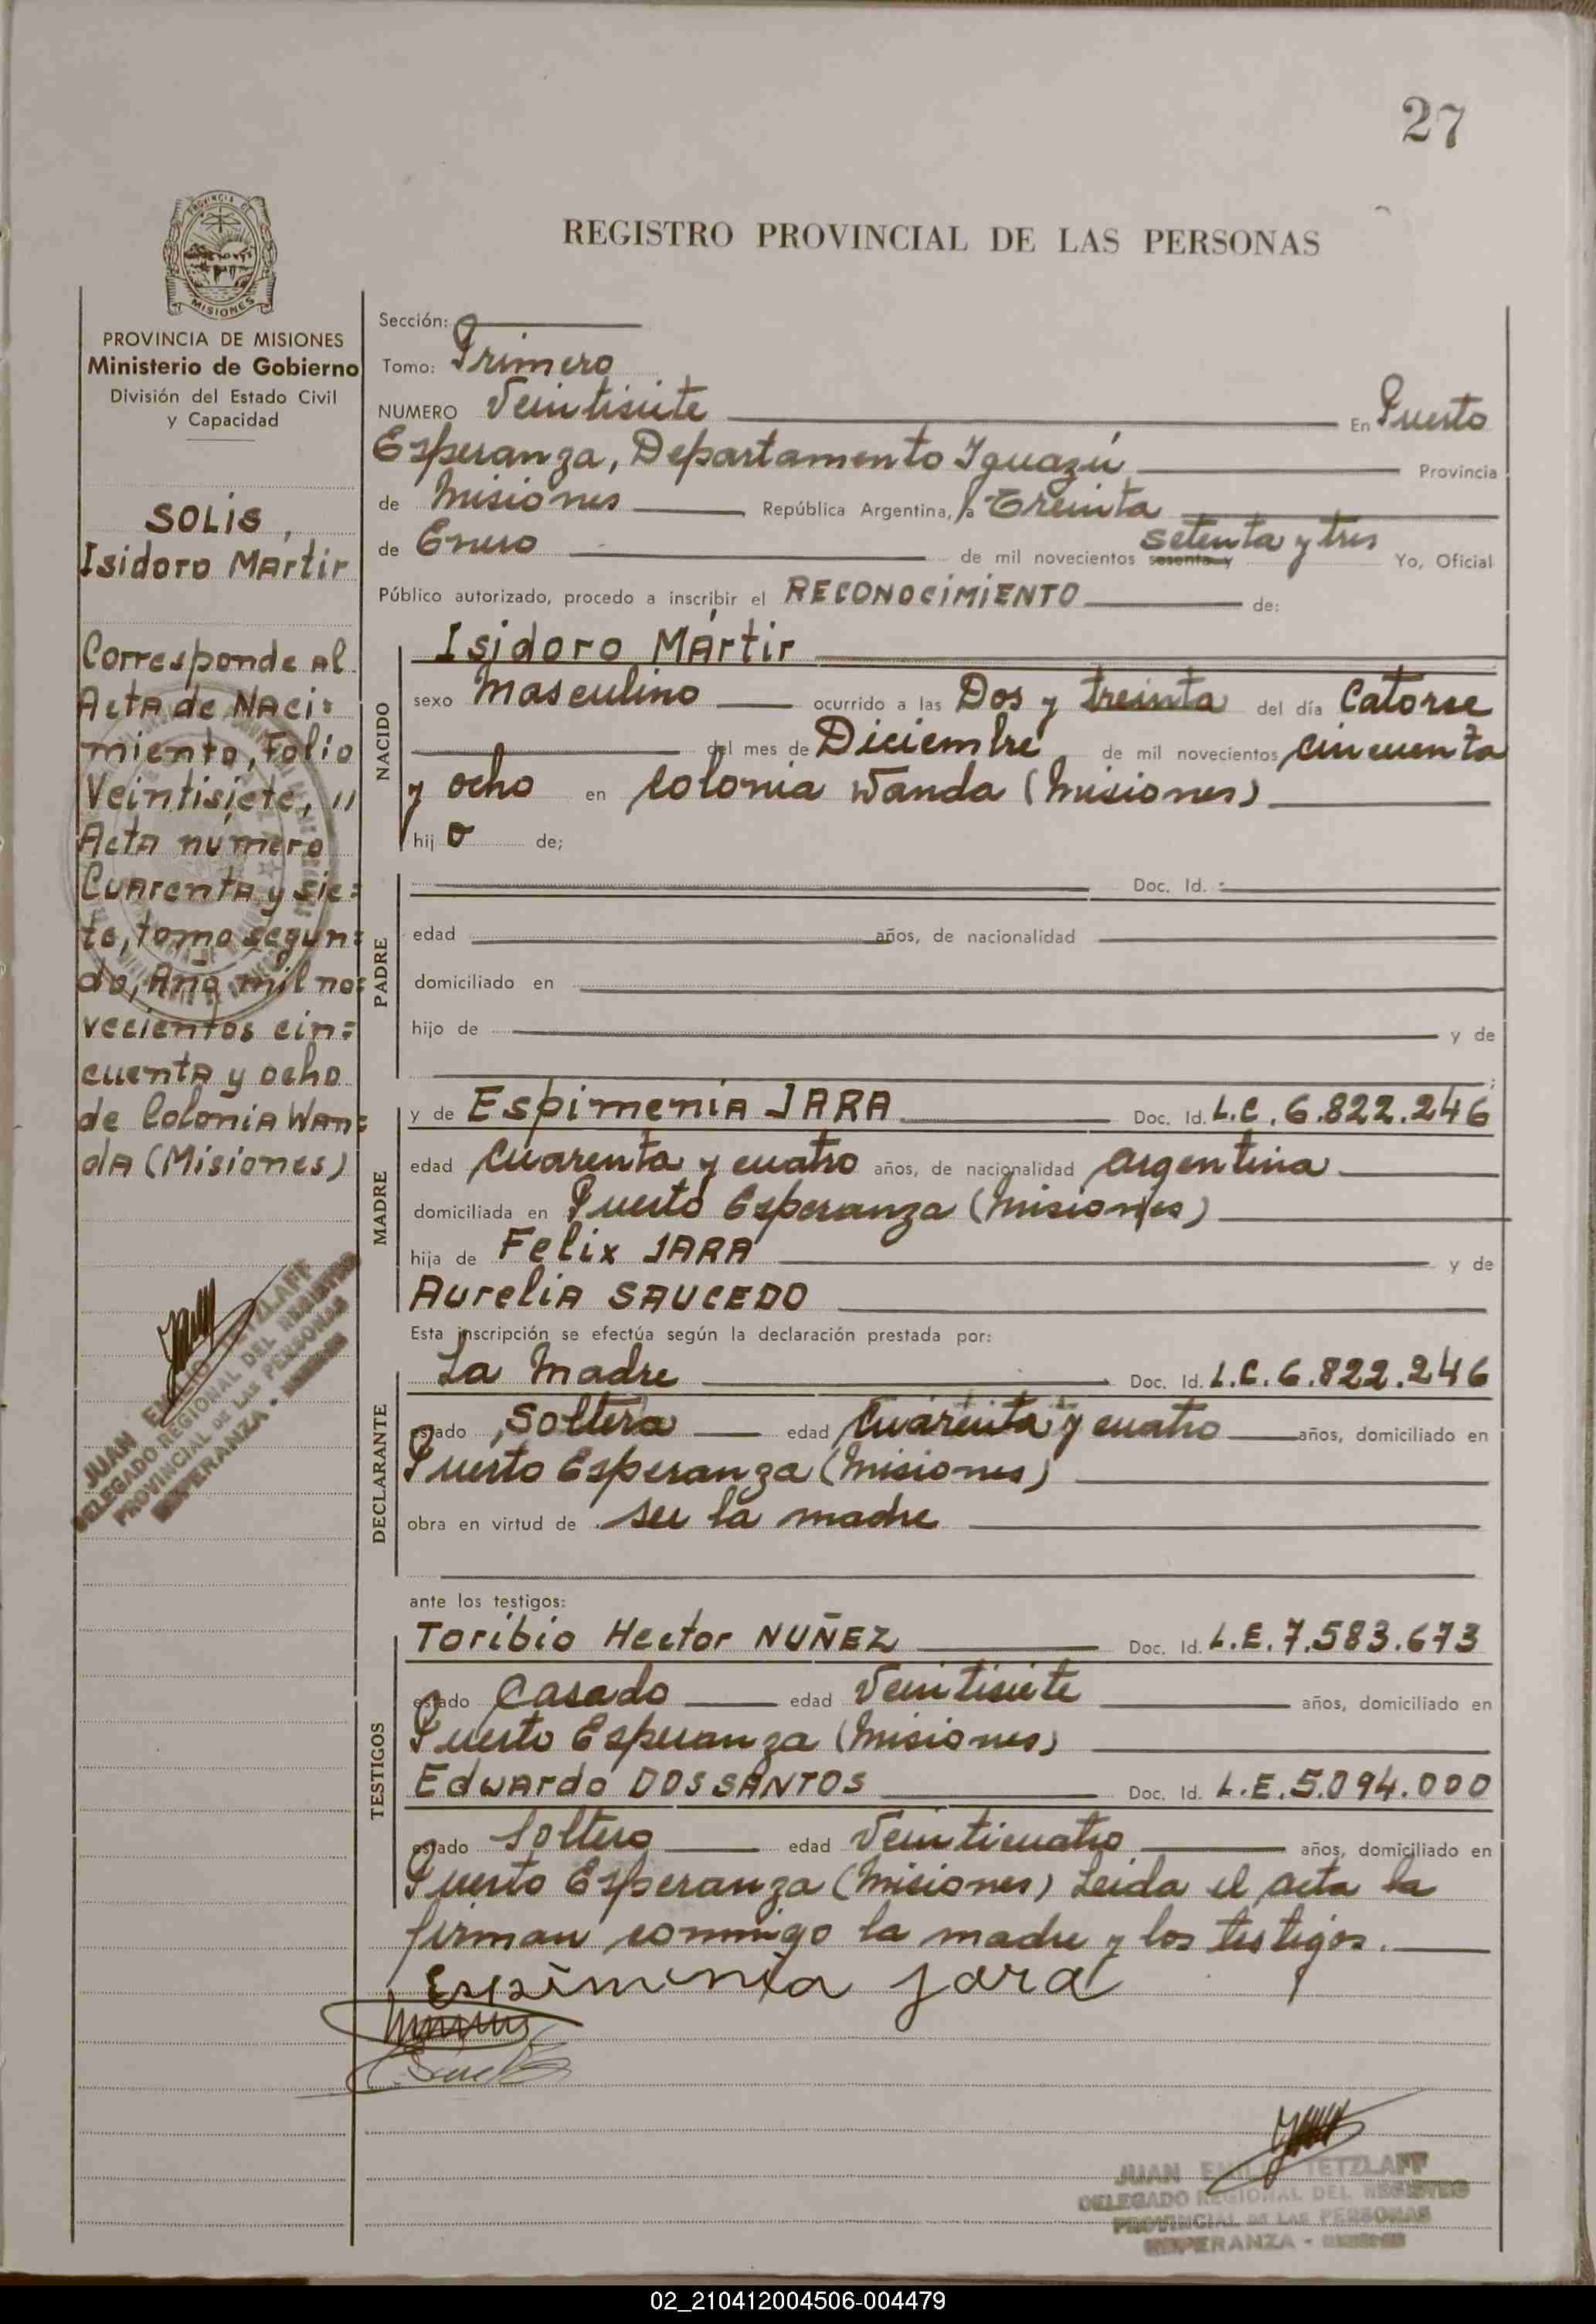 27
PROVINCIA DE
MISIONES
REGISTRO PROVINCIAL DE LAS PERSONAS
PROVINCIA DE MISIONES
Ministerio de Gobierno
División del Estado Civil
y Capacidad
SOLIS,
Isidoro Martir
Corresponde al
Acta de Naci=
miento, Folio
Veintisiete, "
Acta número
Cuarenta y sie=
te, tomo segun=
do, Año mil no=
vecientos cin=
cuenta y ocho
de Colonia Wan=
da (Misiones)
JUAN EMILIO TETZLAFF
DELEGADO REGIONAL DEL REGISTRO
PROVINCIAL DE LAS PERSONAS
ESPERANZA - MISIONES
Sección:
Tomo: Primero
NUMERO Veintisiete En Puerto
Esperanza, Departamento Iguazú Provincia
de Misiones República Argentina, a Treinta
de Enero de mil novecientos sesenta y setenta y tres Yo, Oficial
Público autorizado, procedo a inscribir el RECONOCIMIENTO de:
NACIDO
Isidoro Mártir
sexo Masculino ocurrido a las Dos y treinta del día Catorse
del mes de Diciembre de mil novecientos cincuenta
y ocho en Colonia Wanda (Misiones)
hij o de;
PADRE
Doc. Id. :
edad años, de nacionalidad
domiciliado en
hijo de y de
;
MADRE
y de Espimenia JARA Doc. Id. L.C. 6.822.246
edad Cuarenta y cuatro años, de nacionalidad argentina
domiciliada en Puerto Esperanza (Misiones)
hija de Felix JARA y de
Aurelia SAUCEDO
Esta inscripción se efectúa según la declaración prestada por:
DECLARANTE
La Madre Doc. Id. L.C. 6.822.246
estado Soltera edad Cuarenta y cuatro años, domiciliado en
Puerto Esperanza (Misiones)
obra en virtud de ser la madre
ante los testigos:
TESTIGOS
Toribio Hector NUÑEZ Doc. Id. L.E. 7.583.673
estado Casado edad Veintisiete años, domiciliado en
Puerto Esperanza (Misiones)
Eduardo DOSSANTOS Doc. Id. L.E. 5.094.000
estado Soltero edad Veinticuatro años, domiciliado en
Puerto Esperanza (Misiones) Leida el acta la
firman conmigo la madre y los testigos.
Espimenia Jara
JUAN EMILIO TETZLAFF
DELEGADO REGIONAL DEL REGISTRO
PROVINCIAL DE LAS PERSONAS
ESPERANZA - MISIONES
02_210412004506-004479